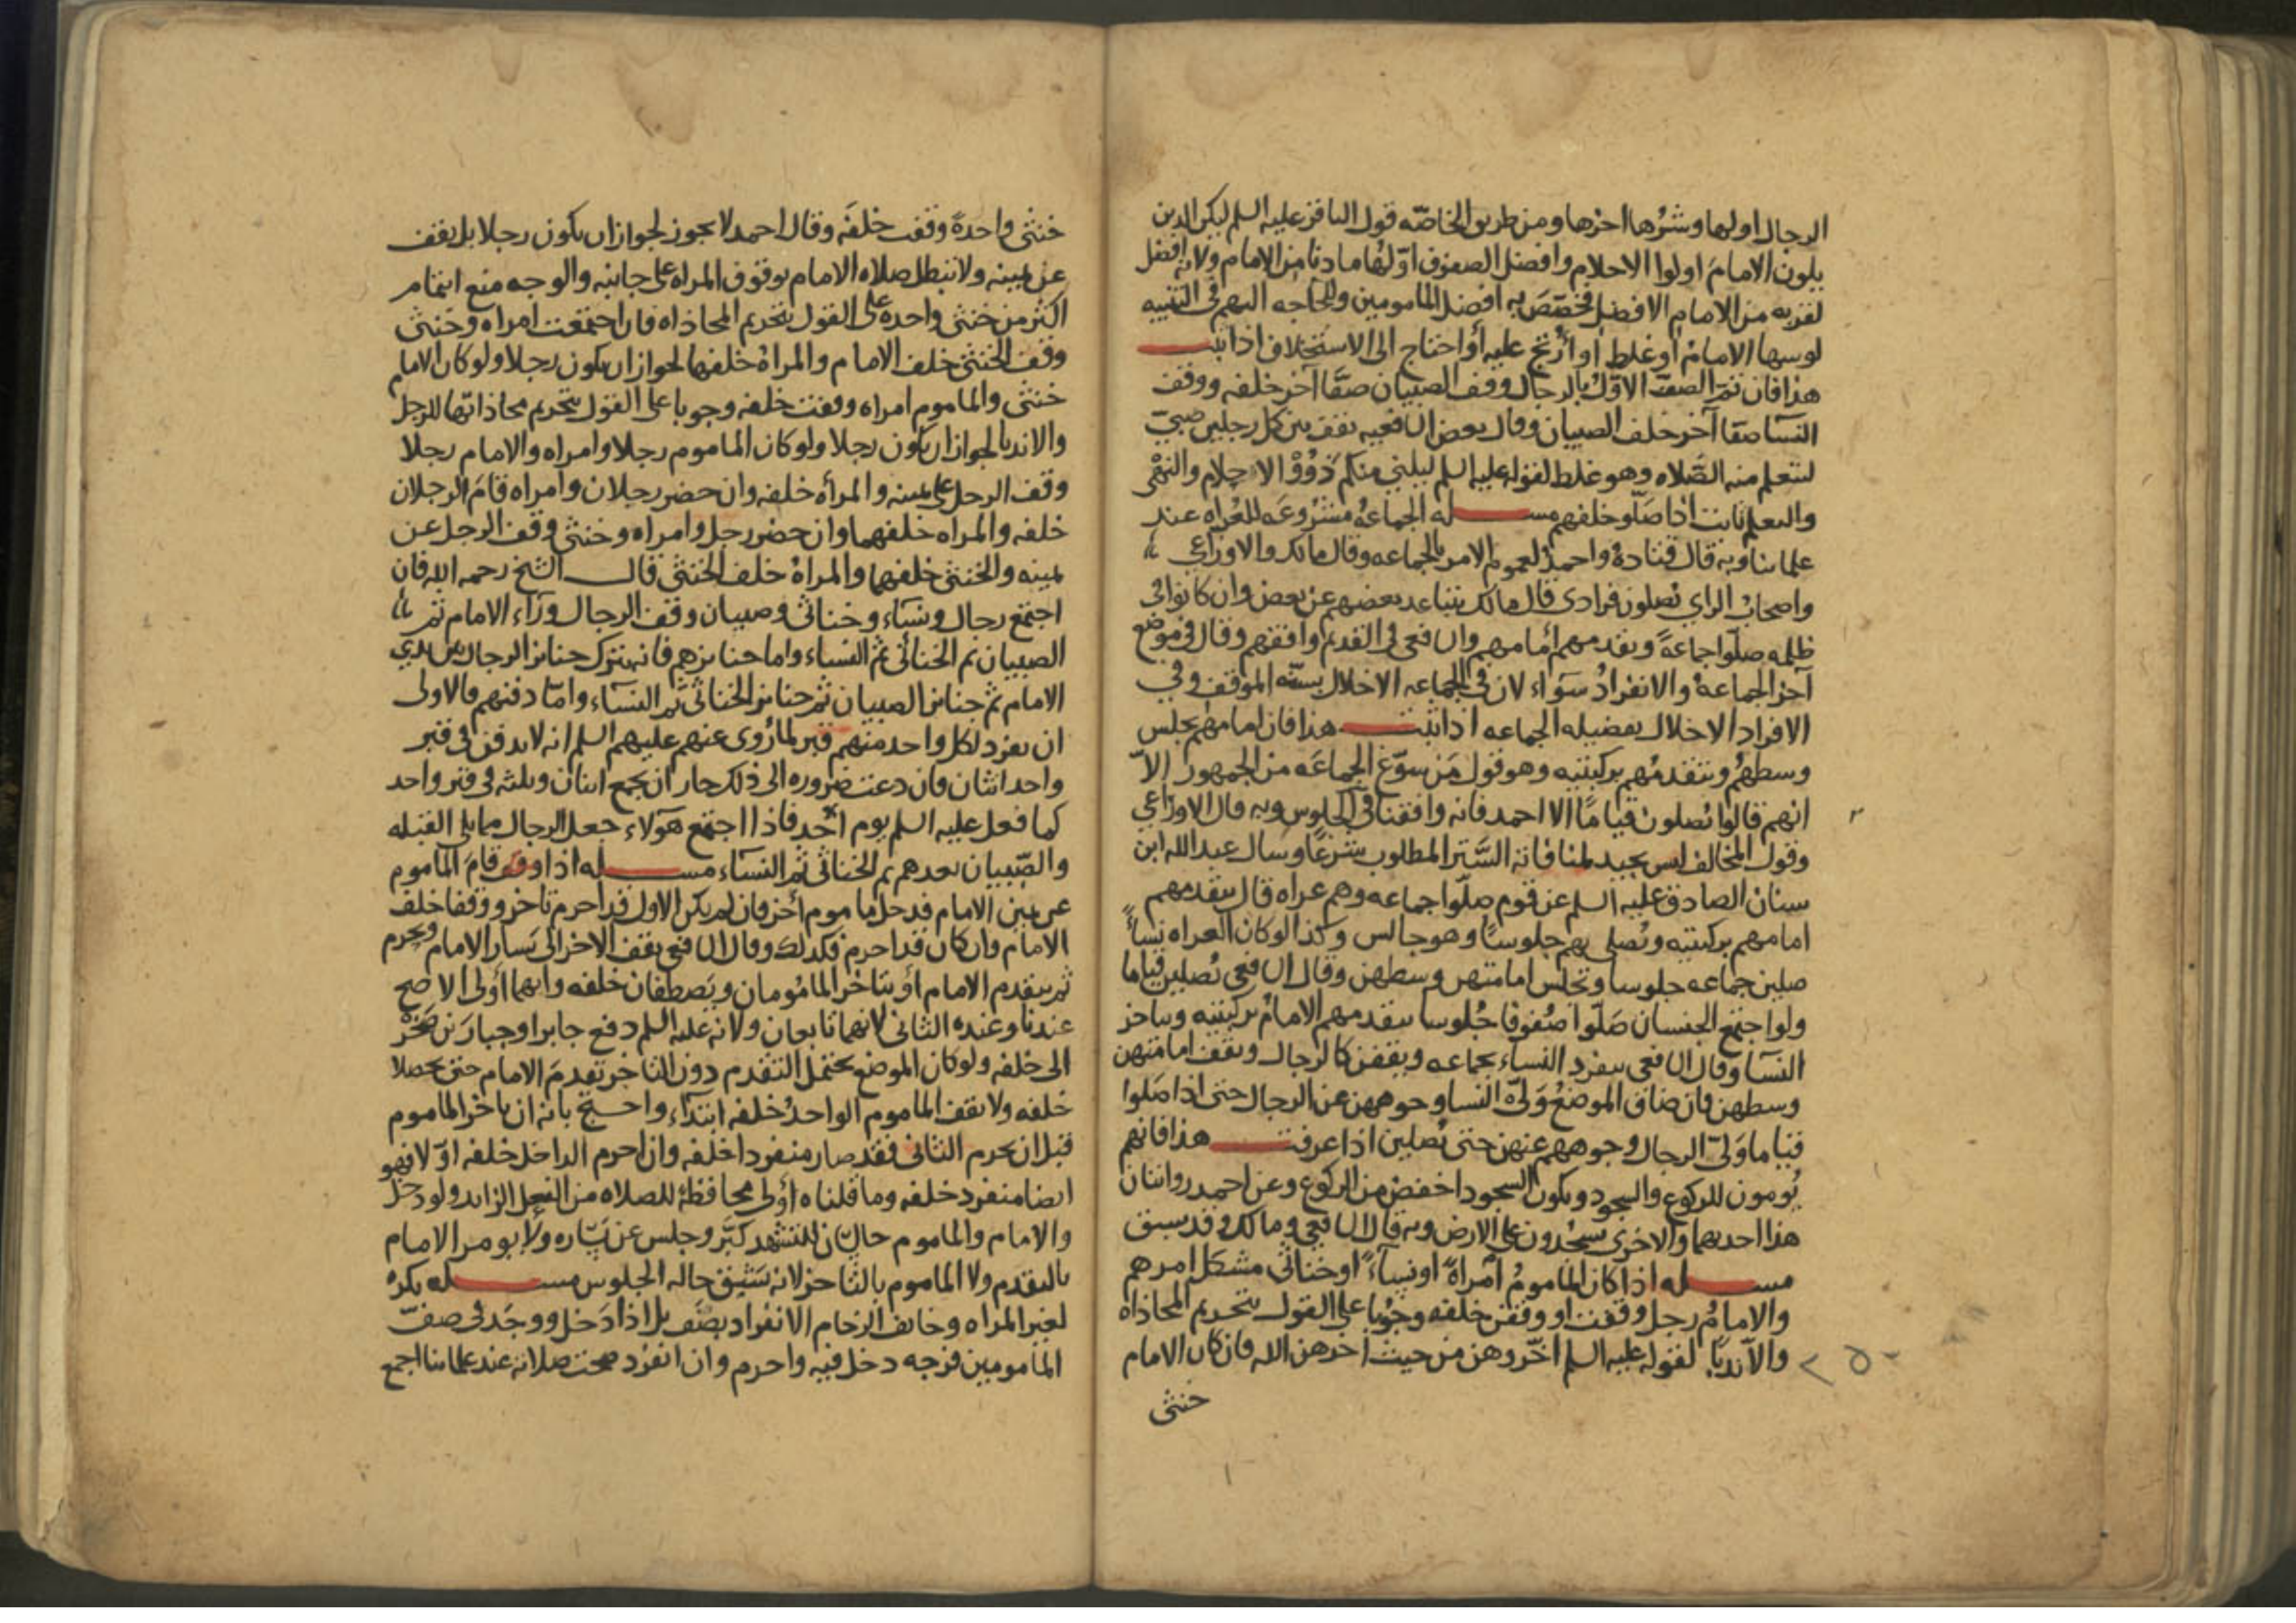 الرجال اولها وشرها اخرها ومن طريق الخاصه قول الباقر عليه السلم ليكن الذين
يلون الامام اولوا الاحلام وافضل الصفوف اولها ما دنا من الامام ولانه افضل
لقربه من الامام الافضل فخصص به افضل المامومين وللحاجه اليهم في التنبيه
لوسها الامام او غلط او ارتج عليه او احتاج الى الاستخلاف اذا ثبت
هذا فان تم الصف الاول بالرجال وقف الصبيان صفا آخر خلفه ووقف
النسآ صفا آخر خلف الصبيان وقال بعض الشافعيه يقف بين كل رجلين صبي
ليتعلم منه الصلاه وهو غلط لقوله عليه السلم ليلني منكم ذوو الاحلام والنهى
والتعلم ثابت اذا صلو خلفهم مسله الجماعه مشروعه للعراه عند
علمائنا وبه قال قتاده واحمد لعموم الامر بالجماعه وقال مالك والاوزاعي
واصحاب الراي يصلون فرادى قال مالك يتباعد بعضهم عن بعض وان كانوا في
ظلمه صلوا جماعه ويقدمهم امامهم والشافعي في القديم وافقهم وقال في موضع
آخر الجماعه والانفراد سواء لان في الجماعه الاخلال بسنه الموقف وفي
الافراد الاخلال بفضيله الجماعه اذا ثبت هذا فان امامهم يجلس
وسطهم ويتقدمهم بركبتيه وهو قول من سوغ الجماعه من الجمهور الا
انهم قالوا يصلون قياما الا احمد فانه وافقنا في الجلوس وبه قال الاوزاعي
وقول المخالف ليس بجيد لمنافاته الستر المطلوب شرعا وسال عبد الله ابن
سنان الصادق عليه السلم عن قوم صلوا جماعه وهم عراه قال يتقدمهم
امامهم بركبتيه ويصلي بهم جلوسا وهو جالس وكذا لو كان العراه نساً
صلين جماعه جلوسا وتجلس امامتهن وسطهن وقال الشافعي يصلين قياما
ولو اجتمع الجنسان صلوا صفوفا جلوسا يتقدمهم الامام بركبتيه ويتاخر
النسآ وقال الشافعي ينفرد النساء بجماعه ويقفن كالرجال وتقف امامتهن
وسطهن فان ضاق الموضع ولى النسا وجوههن عن الرجال حتى اذا صلوا
قياما ولى الرجال وجوههم عنهن حتى يصلين اذا عرفت هذا فانهم
يومون للركوع والسجود ويكون السجود اخفض من الركوع وعن احمد روايتان
هذا احديهما والاخرى يسجدون على الارض وبه قال الشافعي ومالك وقد سبق
مسله اذا كان الماموم امراه او نساءً او خناثى مشكل امرهم
والامام رجل وقفت او وقفن خلفه وجوبا على القول بتحريم المحاذاه
والا ندبا لقوله عليه السلم اخروهن من حيث اخرهن الله فان كان الامام
خنثى
خنثى واحدة وقفت خلفه وقال احمد لا يجوز لجواز ان يكون رجلا بل يقف
عن يمينه ولا تبطل صلاه الامام بوقوف المراه على جانبه والوجه منع ائتمام
اكثر من خنثى واحده على القول بتحريم المحاذاه فان اجتمعت امراه وخنثى
وقف الخنثى خلف الامام والمراة خلفها لجواز ان يكون رجلا ولو كان الامام
خنثى والماموم امراه وقفت خلفه وجوبا على القول بتحريم محاذاتها للرجل
والا ندبا لجواز ان يكون رجلا ولو كان الماموم رجلا وامراه والامام رجلا
وقف الرجل على يمينه والمرأه خلفه وان حضر رجلان وامراه قام الرجلان
خلفه والمراه خلفهما وان حضر رجل وامراه وخنثى وقف الرجل عن
يمينه والخنثى خلفهما والمراة خلف الخنثى قال الشيخ رحمه الله فان
اجتمع رجال ونسآء وخناثى وصبيان وقف الرجال ورآء الامام ثم
الصبيان ثم الخناثى ثم النساء واما جنايزهم فانه تترك جنايز الرجال بين يدي
الامام ثم جنايز الصبيان ثم جنايز الخناثى ثم النسآء واما دفنهم فالاولى
ان يفرد لكل واحد منهم قبر لما روى عنهم عليهم السلم انه لا يدفن في قبر
واحد اثنان فان دعت ضروره الى ذلك جاز ان يجمع اثنان وثلثه في قبر واحد
كما فعل عليه السلم يوم احد فاذا اجتمع هولاء جعل الرجال مما يلي القبله
والصبيان بعدهم ثم الخناثى ثم النسآء مسله اذا وقف قام الماموم
عن يمين الامام فدخل ماموم آخر فان لم يكن الاول قد احرم تاخر ووقفا خلف
الامام وان كان قد احرم فكذلك وقال الشافعي يقف الاخر الى يسار الامام ويحرم
ثم يتقدم الامام او يتاخر المامومان ويصطفان خلفه وايهما اولى الاصح
عندنا وعنده الثاني لانهما تابعان ولانه عليه السلم دفع جابرا وجبار بن صخر
الى خلفه ولو كان الموضع يحتمل التقدم دون التاخر تقدم الامام حتى يحصلا
خلفه ولا يقف الماموم الواحد خلفه ابتدآء واحتج بانه ان تاخر الماموم
قبل ان يحرم الثاني فقد صار منفردا خلفه وان احرم الداخل خلفه اولا فهو
ايضا منفرد خلفه وما قلناه اولى محافظة للصلاه من الفعل الزايد ولو دخل
والامام والماموم جالسان للتشهد كبر وجلس عن يساره ولا يومر الامام
بالتقدم ولا الماموم بالتاخر لانه يشق حاله الجلوس مسله يكره
لغير المراه وخايف الزحام الانفراد بصف بل اذا دخل ووجد في صف
المامومين فرجه دخل فيه واحرم وان انفرد صحت صلاته عند علمائنا اجمع